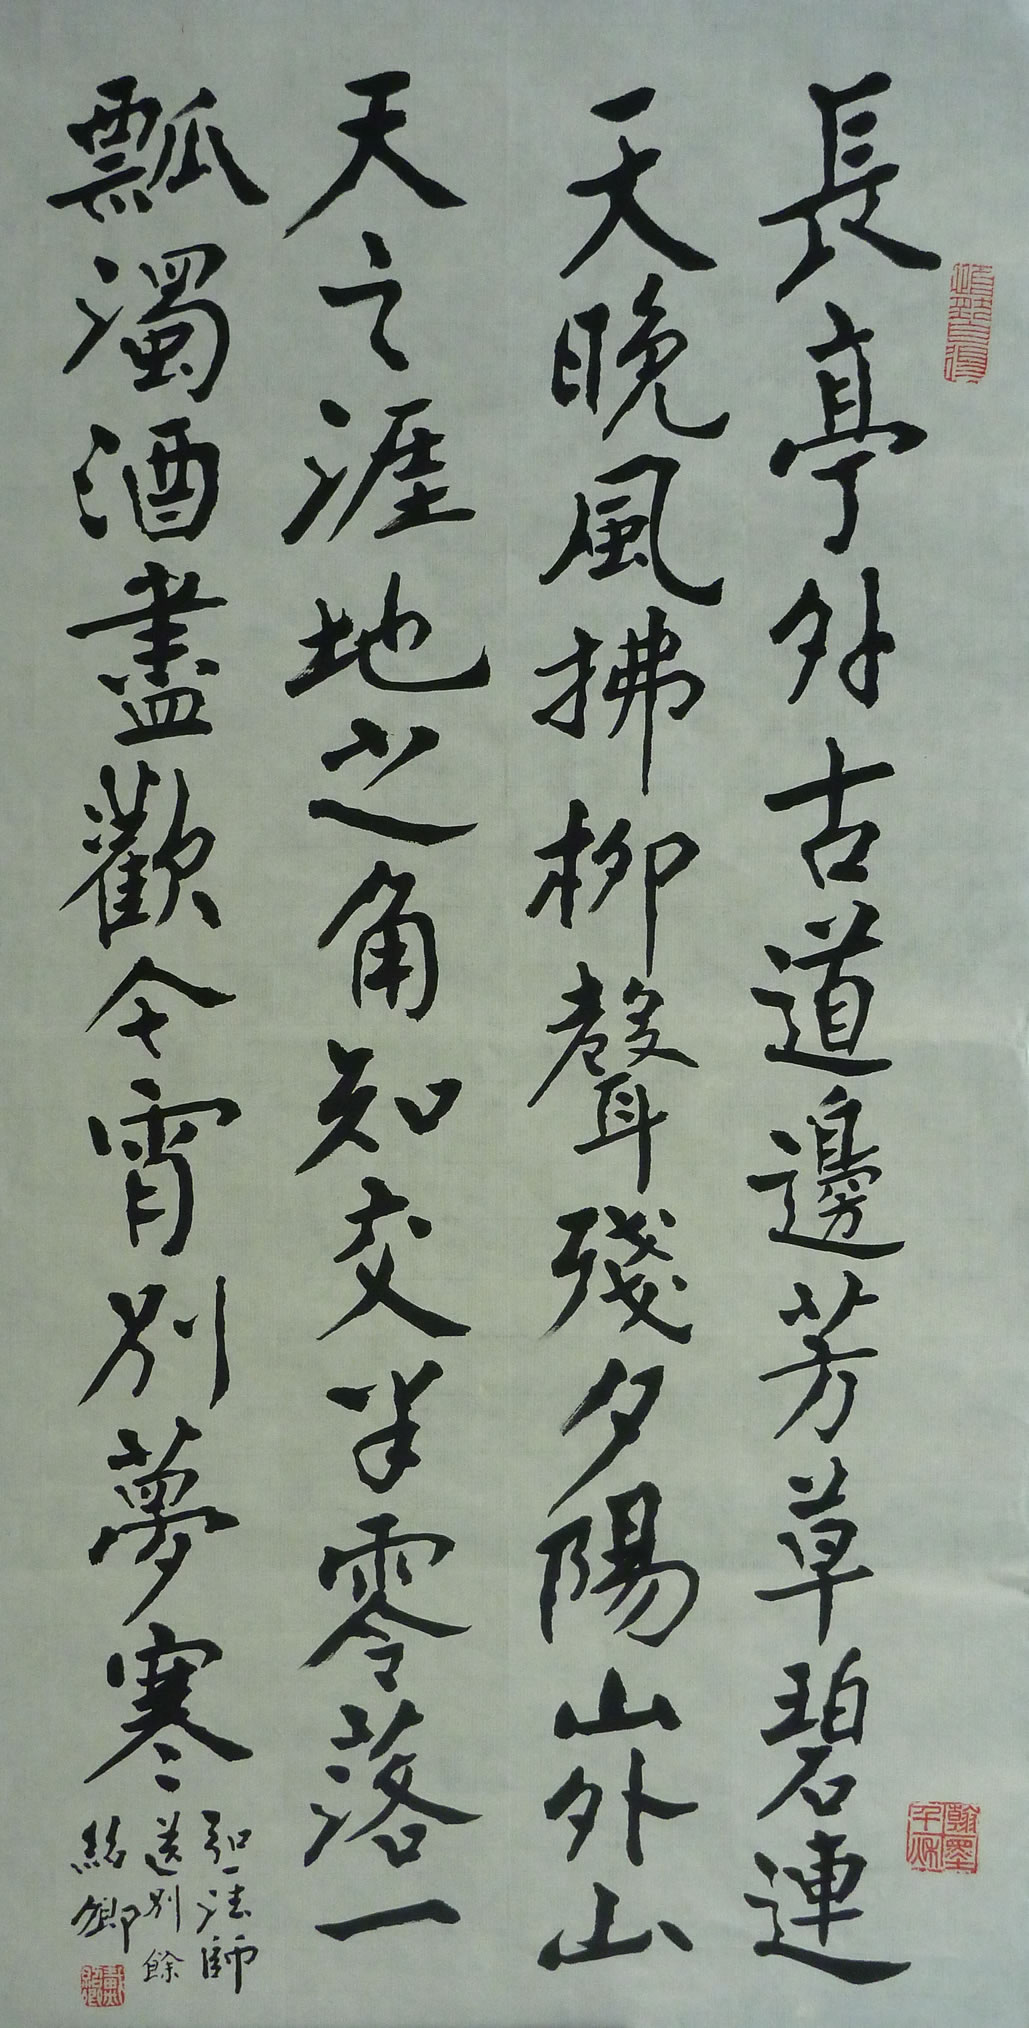 長亭外古道邊芳草碧連
天晚風拂柳聲殘夕陽山外山
天之涯地之角知交半零落一
瓢濁酒盡歡今宵別夢寒
弘一法師
送別餘
紹卿
翰墨千秋